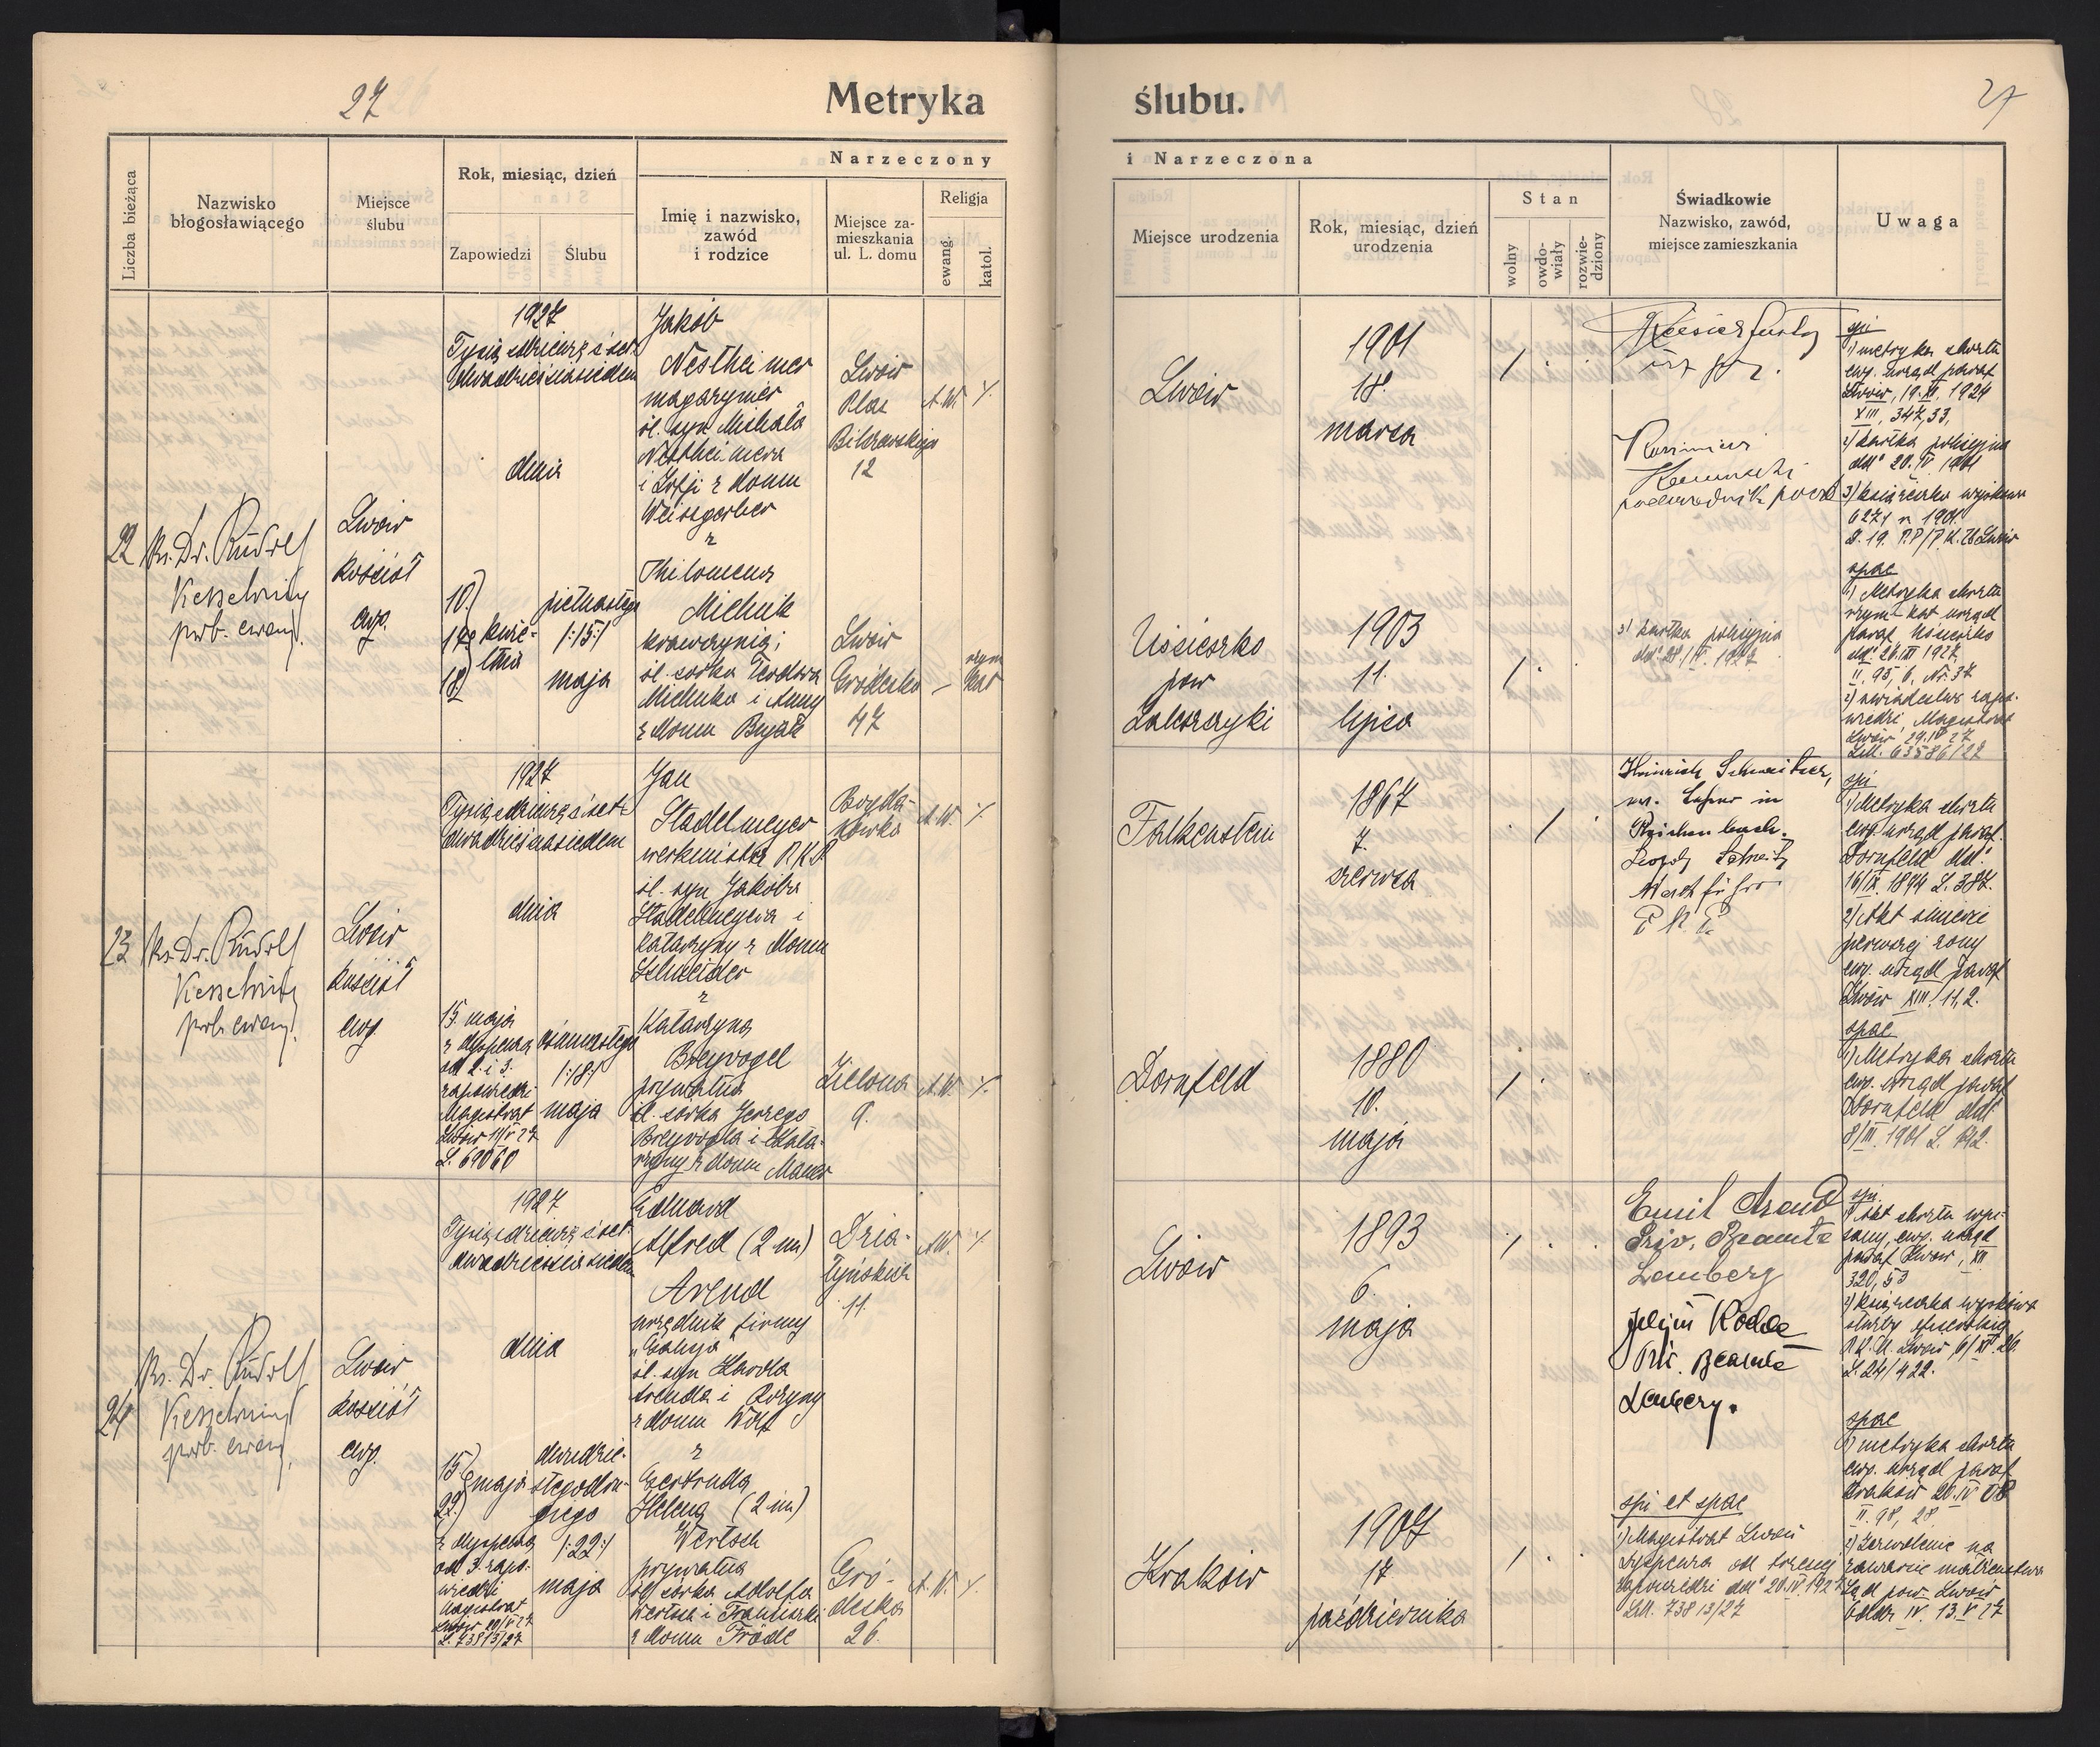 27
Metryka
ślubu.
27
Liczba bieżąca
Nazwisko
błogosławiącego
Miejsce
ślubu
Rok, miesiąc, dzień
Zapowiedzi
Ślubu
Narzeczony
Imię i nazwisko,
zawód
i rodzice
Miejsce za-
mieszkania
ul. L. domu
Religja
ewang.
katol.
i Narzeczona
Miejsce urodzenia
Rok, miesiąc, dzień
urodzenia
Stan
wolny
owdo-
wiały
rozwie-
dziony
Świadkowie
Nazwisko, zawód,
miejsce zamieszkania
Uwaga
22
ks. Dr. Rudolf
Kesselring
prob. ewang.
Lwów
kościół
ewg.
1927
Tysiąc dziewięćset
dwadzieścia siedem
dnia
10)
17) kwie-
tnia
18)
piętnastego
/:15:/
maja
Jakób
Nestheimer
magazynier
śl. syn Michała
Nestheimera
i Zofji z domu
Weissgerber
z
Philomena
Michnik
krawczynią;
śl. córka Teodora
Michnika i Anny
z domu
Lwów
Plac
Bilczewskiego
12
A.W. /.
Lwów
Gródecka
47
– rzym
kat
Lwów
1901
18.
marca
/
Uścieczko
pow
Zaleszczyki
1903
11.
lipca
/
Kazimierz
podurzędnik poczt
3) kartka policyjna
dd° 28./IV. 1927
spi
1) metryka chrztu
ewg. urząd paraf
Lwów, 19.XI. 1924
XIII, 347, 33,
2) kartka policyjna
dd° 20. IV 1901
3) książeczka wojskowa
6271 r. 1901
spae
1) Metryka chrztu
rzym-kat urząd
paraf. Uścieczko
dd° 26.III 1927,
II. 95, 6, Nr. 37
2) świadectwo zapo-
wiedzi Magistrat
Lwów 29.IV 27
LM. 63586/27
23
ks. Dr. Rudolf
Kesselring
prob. ewang.
Lwów
kościół
ewg.
1927
Tysiąc dziewięćset
dwadzieścia siedem
dnia
15. maja
z dyspensą
od 2. i 3.
zapowiedzi
Magistrat
Lwów 11/V 27
L. 69060
ośmnastego
/:18:/
maja
Jan
Stadelmeyer
werkmistrz P.K.P.
śl. syn Jakóba
Stadelmeyera i
Katarzyny z domu
Schneider
z
Katarzyna
Breyvogel
prywatna
śl. córka Jerzego
Breyvogla i Kata-
rzyny z domu Mauer
Bogda-
nówka
A.W. /.
Zielona
9.
A.W. /.
Falkenstein
1867
7.
czerwca
/
Dornfeld
1880
10.
maja
/
Heinrich Schweitzer,
ev. Lehrer in
Reichenbach.
P K P
spi
1) Metryka chrztu
ewg. urząd paraf.
Dornfeld dd°
16/IX. 1894 L. 387.
2) Akt śmierci
pierwszej żony
ewg. urząd paraf
Lwów XIII. 11, 2.
spae
1) Metryka chrztu
ewg. urząd paraf
Dornfeld dd°
8/III. 1901 L. 642.
24
ks. Dr. Rudolf
Kesselring
prob. ewang.
Lwów
kościół
ewg.
1927
Tysiąc dziewięćset
dwadzieścia siedem
dnia
15.)
maja
22.)
z dyspensą
od 3. zapo-
wiedzi
Magistrat
Lwów 20/V 27
L. 73813/27
dwudzie-
stego dru-
giego
/:22:/
maja
Eduard
Alfred (2 im)
Arend
urzędnik firmy
śl. syn Karola
Arenda i
z domu Wolf
z
Gertruda
Helena (2 im)
Wertsch
prywatna
śl. córka Adolfa
Wertsch i Franciszki
z domu Fröde
Dzia-
łyńskich
11.
A.W. /.
Gró-
decka
26.
A.W. /.
Lwów
1893
6.
maja
/
Kraków
1907
17.
października
/
Emil Arend
Priv. Beamte
Lemberg
Priv. Beamte
Lemberg.
spi et spae
1) Magistrat Lwów
dyspensa od trzeciej
zapowiedzi dd° 20.IV.1927
LM. 73813/27
spi.
1) Akt chrztu wpi-
sany, ewg. urząd
paraf Lwów, XII
320, 53
2) książeczka wojskowa
P.K.U. Lwów, 6/XI. 26.
L. 24/422.
spae
1) metryka chrztu
ewg. urząd paraf
Kraków 20.IV 08
II. 98, 28
2) Zezwolenie na
zawarcie małżeństwa
Sąd pow. Lwów
Oddz IV. 13.V 27